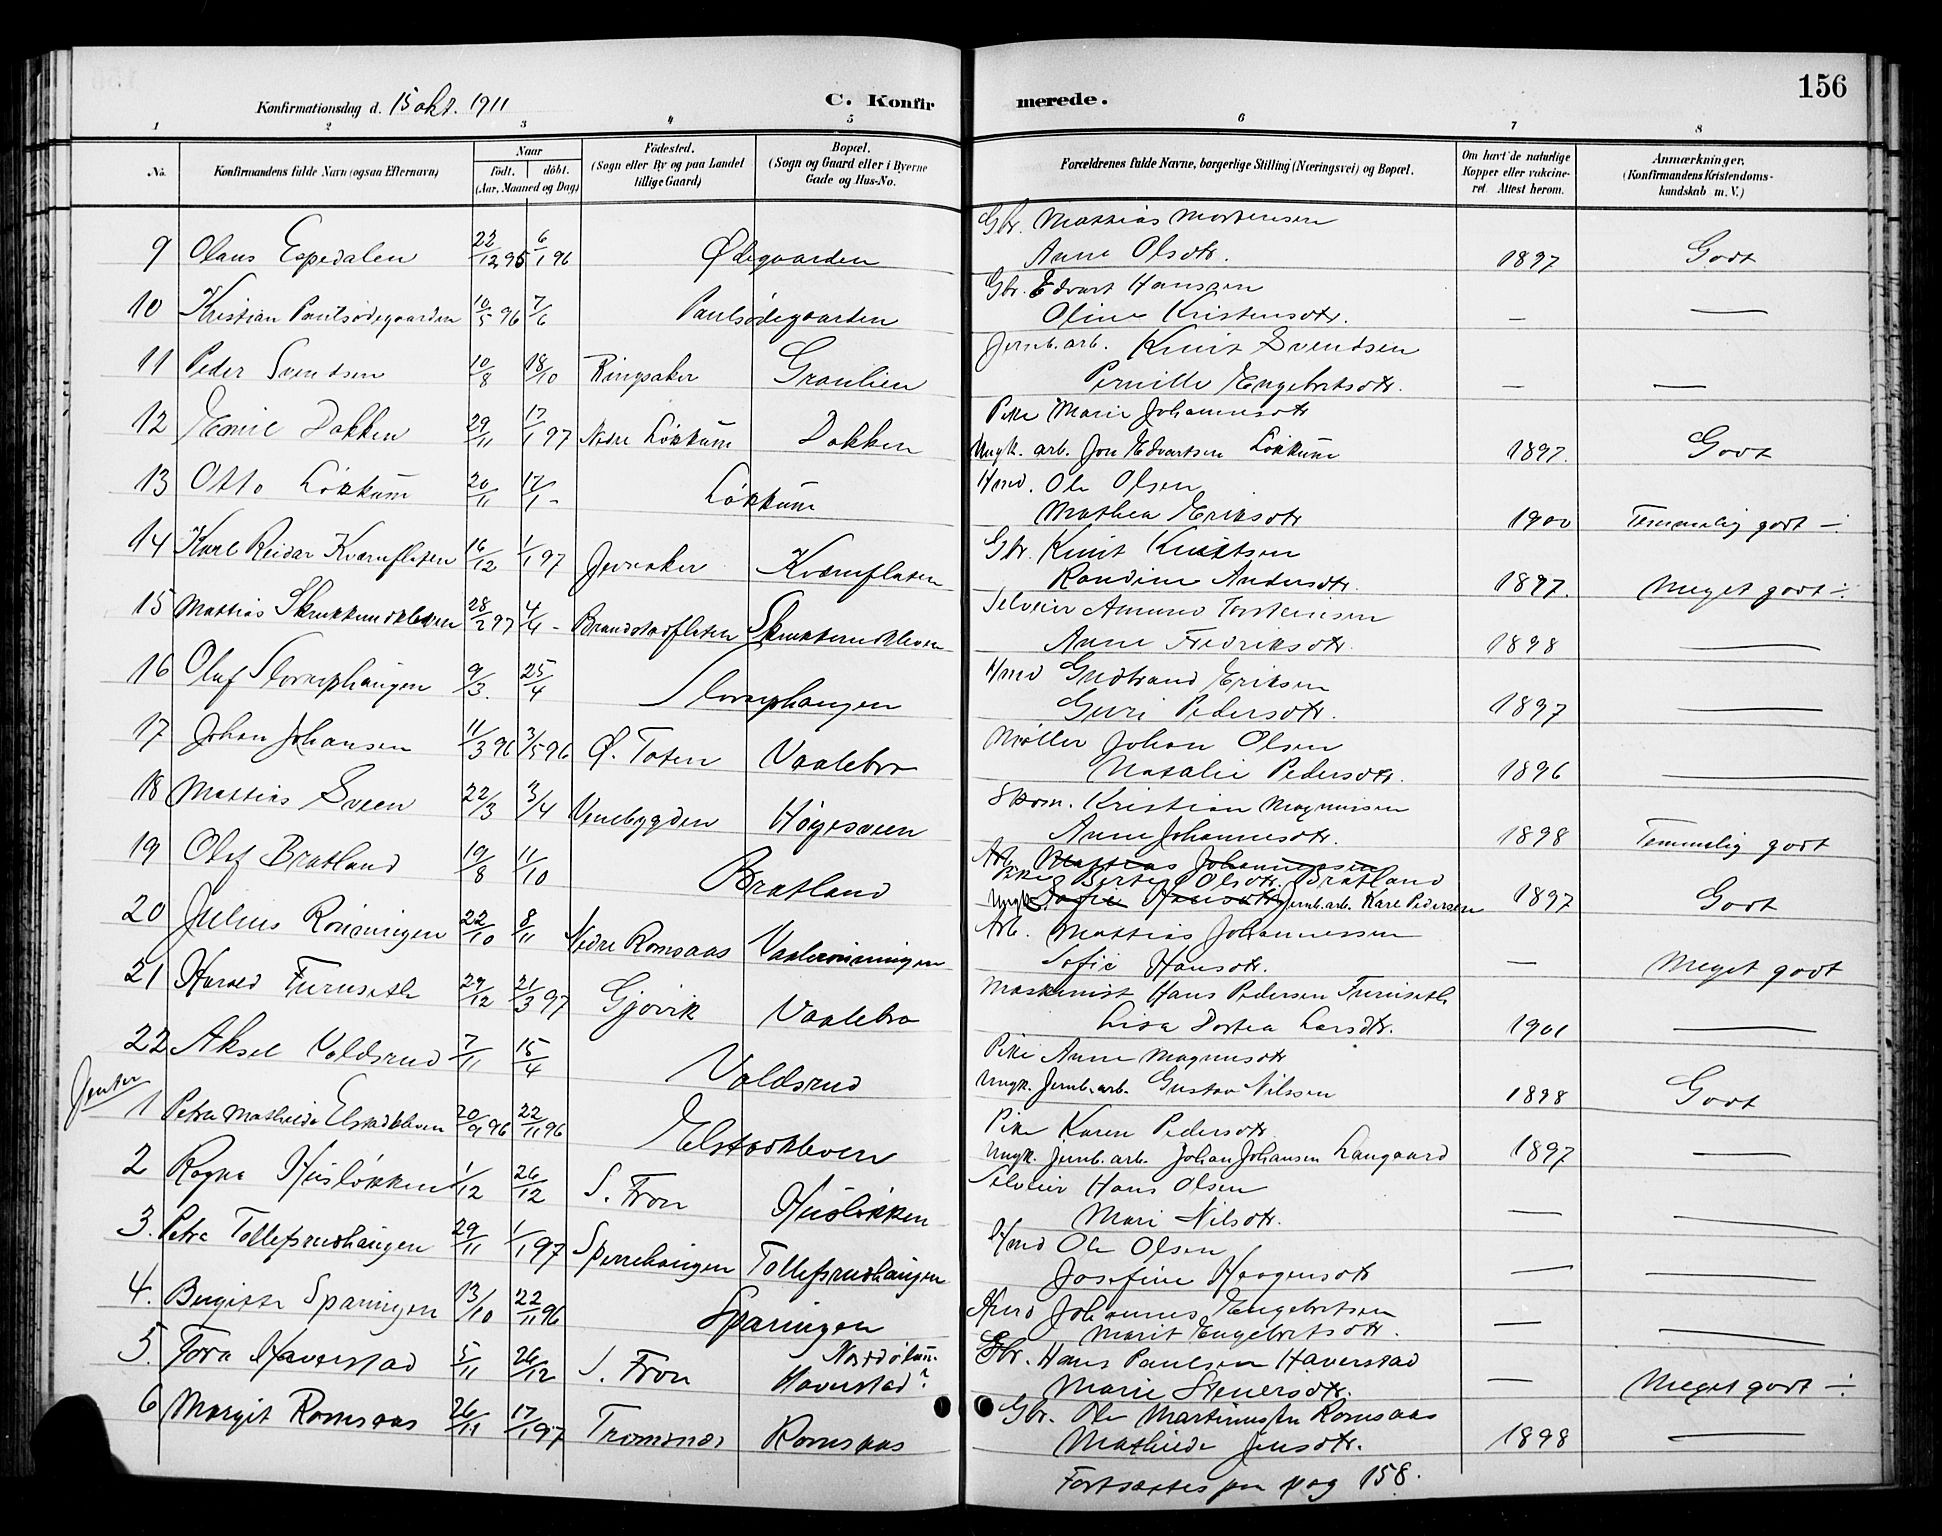 156
Konfirmationsdag d. 15 okt. 1911
C. Konfirmerede.
1 2 3 4 5 6 7 8
No. Konfirmandens fulde Navn (ogsaa Efternavn) Naar födt. döbt. (Aar, Maaned og Dag) Födested. (Sogn eller By og paa Landet tillige Gaard) Bopæl. (Sogn og Gaard eller i Byerne Gade og Hus-No. Forældrenes fulde Navne, borgerlige Stilling (Næringsvei) og Bopæl. Om havt de naturlige Kopper eller vakcineret. Attest herom. Anmærkninger. (Konfirmandens Kristendomskundskab m. V.)
Gbr. Mattias Mortensen
9 Olaus Espedalen 22/12 95 6/1 96 Ødegaarden Anne Olsdtr. 1897 Godt
Gbr. Edvart Hansen
10 Kristian Paulsødegaarden 10/5 96 7/6 Paulsødegaarden Oline Kristensdtr. — —
Jernb.arb. Knut Svendsen
11 Peder Svendsen 10/8 18/10 Ringsaker Graulien Pernille Engebretsdtr. — —
Pike Marie Johannesdtr
12 Emil Dokken 29/11 17/1 97 Nedre Løkkum Dokken Ungk. arb. Jon Edvartsen Løkkum 1897. Godt
Hmd. Ole Olsen
13 Otto Løkkum 20/11 17/1 - Løkkum Mathea Eriksdtr 1900 Temmelig godt ÷
Gbr. Knut Knutsen
14 Karl Reidar Kværnflaten 16/12 1/1 97 Jevnaker Kværnflaten Randine Andersdtr. 1897. Meget godt ÷
Selveier Amund Torstensen
15 Mattias Skrukkerudkleven 28/2 97 4/4 - Brandstadflaten Skrukkerudkleven Anne Fredriksdtr. 1898 —
Hmd Gudbrand Eriksen
16 Olaf Sloruphaugen 9/3. 25/4 Sloruphaugen Guri Pedersdtr. 1897 —
Møller Johan Olsen
17 Johan Johansen 11/3 96 3/5 96 Ø. Toten Vaalebro Natalie Pedersdtr. 1896 —
Skom. Kristian Magnussen
18 Mattias Sveen 22/3 3/4 Venebygden Høgesveen Anne Johannesdtr. 1898 Temmelig godt
Arb. Mattias Johannessen
Pike Berte Olsdtr. Bratland
19 Olaf Bratland 19/8 11/10 Bratland Ungk. Sofie Hansdtr Jernb.arb. Karl Pedersen 1897 Godt
Arb. Mattias Johannessen
20 Julius Rønningen 22/10 8/11 Nedre Romsaas Vaalerønningen Sofie Hansdtr. — Meget godt
Maskinist Hans Pedersen Furuseth
21 Harald Furuseth 29/12 21/3 97 Gjøvik Vaalebro Lisa Dortea Larsdtr. 1901 —
Pike Anne Magnusdtr
22 Aksel Voldsrud 7/11 15/4 Voldsrud Ungk. Jernb.arb. Gustav Nilssen 1898 Godt
Jenter
Pike Karen Pedersdtr
1 Petra Mathilde Elstadkleven 20/9 96 22/11 96 Elstadkleven Ungk. Jernb.arb. Johan Johansen Langaard 1897 —
Selveier Hans Olsen
2 Ragna Husløkken 1/12 26/12 S. Fron Husløkken Mari Nilsdtr. — —
Hmd Ole Olsen
3. Petra Tollefsrudhaugen 29/11 1/1 97 Sperrehaugen Tollefsrudhaugen Josefine Haagensdtr — —
Hmd Johannes Engebretsen
4. Birgitte Sparingen 13/10 22/11 96 Sparingen Marit Engebretsdtr. — —
Gbr. Hans Paulsen Haverstad
5. Tora Haverstad 5/11 26/12 S. Fron Haverstad? Marie Stenersdtr. — Meget godt ÷
Gbr. Ole Martinussen Romsaas
6 Margit Romsaas 26/11 17/1 97 Tromsnes Romsaas Mathilde Jensdtr. 1898 —
Fortsættes paa pag 158.